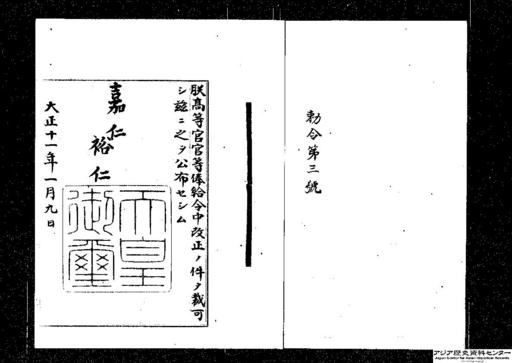 勅令第三號
朕高等官官等俸給令中改正ノ件ヲ裁可
シ茲ニ之ヲ公布セシム
嘉仁
裕仁
天皇
御璽
大正十一年一月九日
アジア歴史資料センター
Japan Center for Asian Historical Records